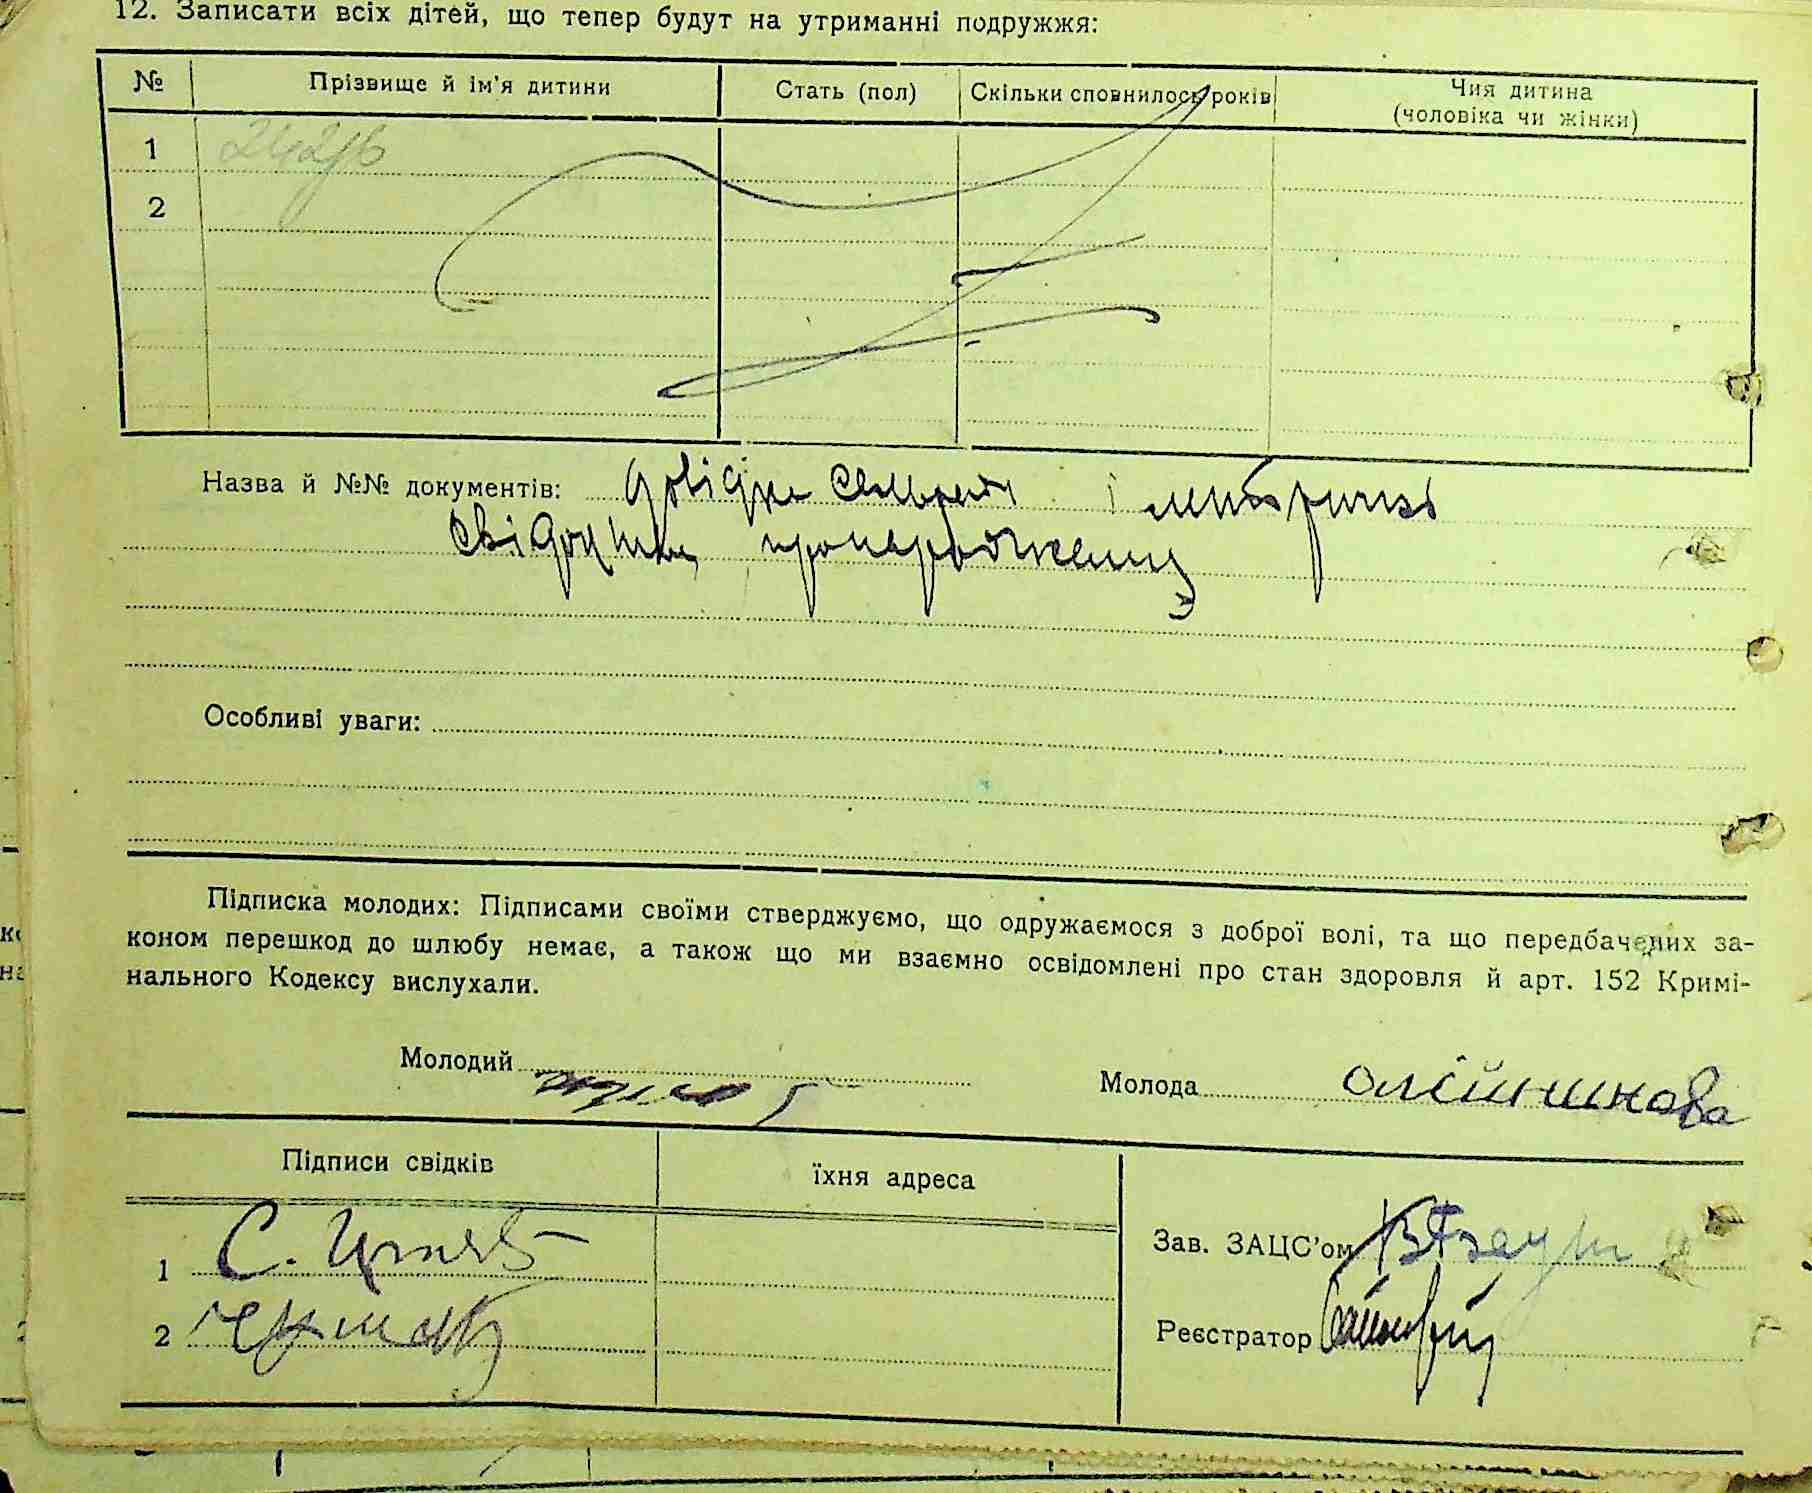 12. Записати всіх дітей, що тепер будут на утриманні подружжя:
№ Прізвище й ім'я дитини Стать (пол) Скільки сповнилось років Чия дитина
(чоловіка чи жінки)
1
2
Назва й №№ документів: довідка сельради і метричкі
свідоцтва про народження
Особливі уваги:
Підписка молодих: Підписами своїми стверджуємо, що одружаємося з доброї волі, та що передбачених за-
коном перешкод до шлюбу немає, а також що ми взаємно освідомлені про стан здоровля й арт. 152 Кримі-
нального Кодексу вислухали.
Молодий Молода Олійникова
Підписи свідків їхня адреса
Зав. ЗАЦС'ом
1 С.
Реєстратор
2